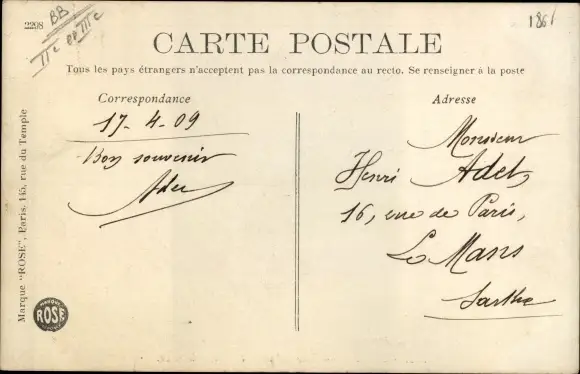 2208
BB
IIe IIIe
186
CARTE POSTALE
Tous les pays étrangers n'acceptent pas la correspondance au recto. Se renseigner à la poste
Correspondance
17-4-09
Bon souvenir
Adresse
Monsieur
Henri Adet,
16, rue de Paris,
Le Mans
Sarthe
Marque "ROSE", Paris, 145, rue du Temple
ROSE